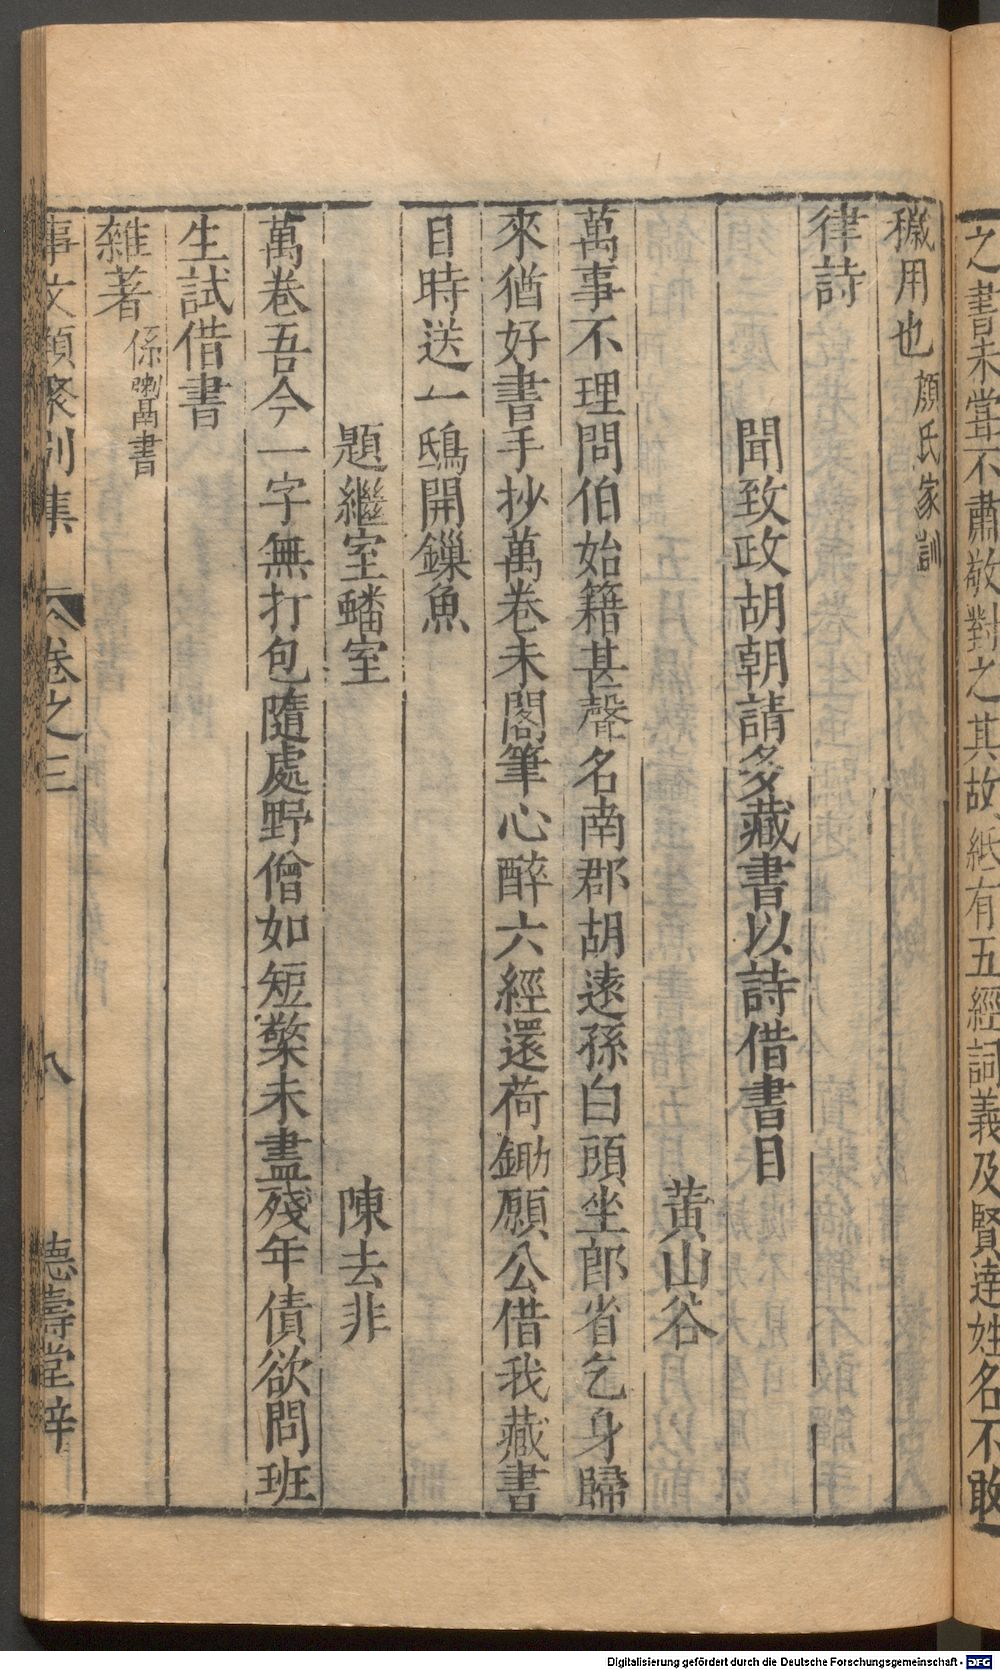 之書未嘗不肅敬對之其故紙有五經詞義及賢達姓名不敢
穢用也顔氏家訓
律詩
聞致政胡朝請多藏書以詩借書目
黄山谷
萬事不理問伯始籍甚聲名南郡胡遠孫白頭坐郎省乞身歸
來猶好書手抄萬卷未閣筆心醉六經還荷鋤願公借我藏書
目時送一鴟開鏁魚
題繼室蟠室
陳去非
萬卷吾今一字無打包隨處野僧如短檠未盡殘年債欲問班
生試借書
雜著係書
事文類聚別集
卷之三
八
德壽堂梓
Digitalisierung gefördert durch die Deutsche Forschungsgemeinschaft - DFG